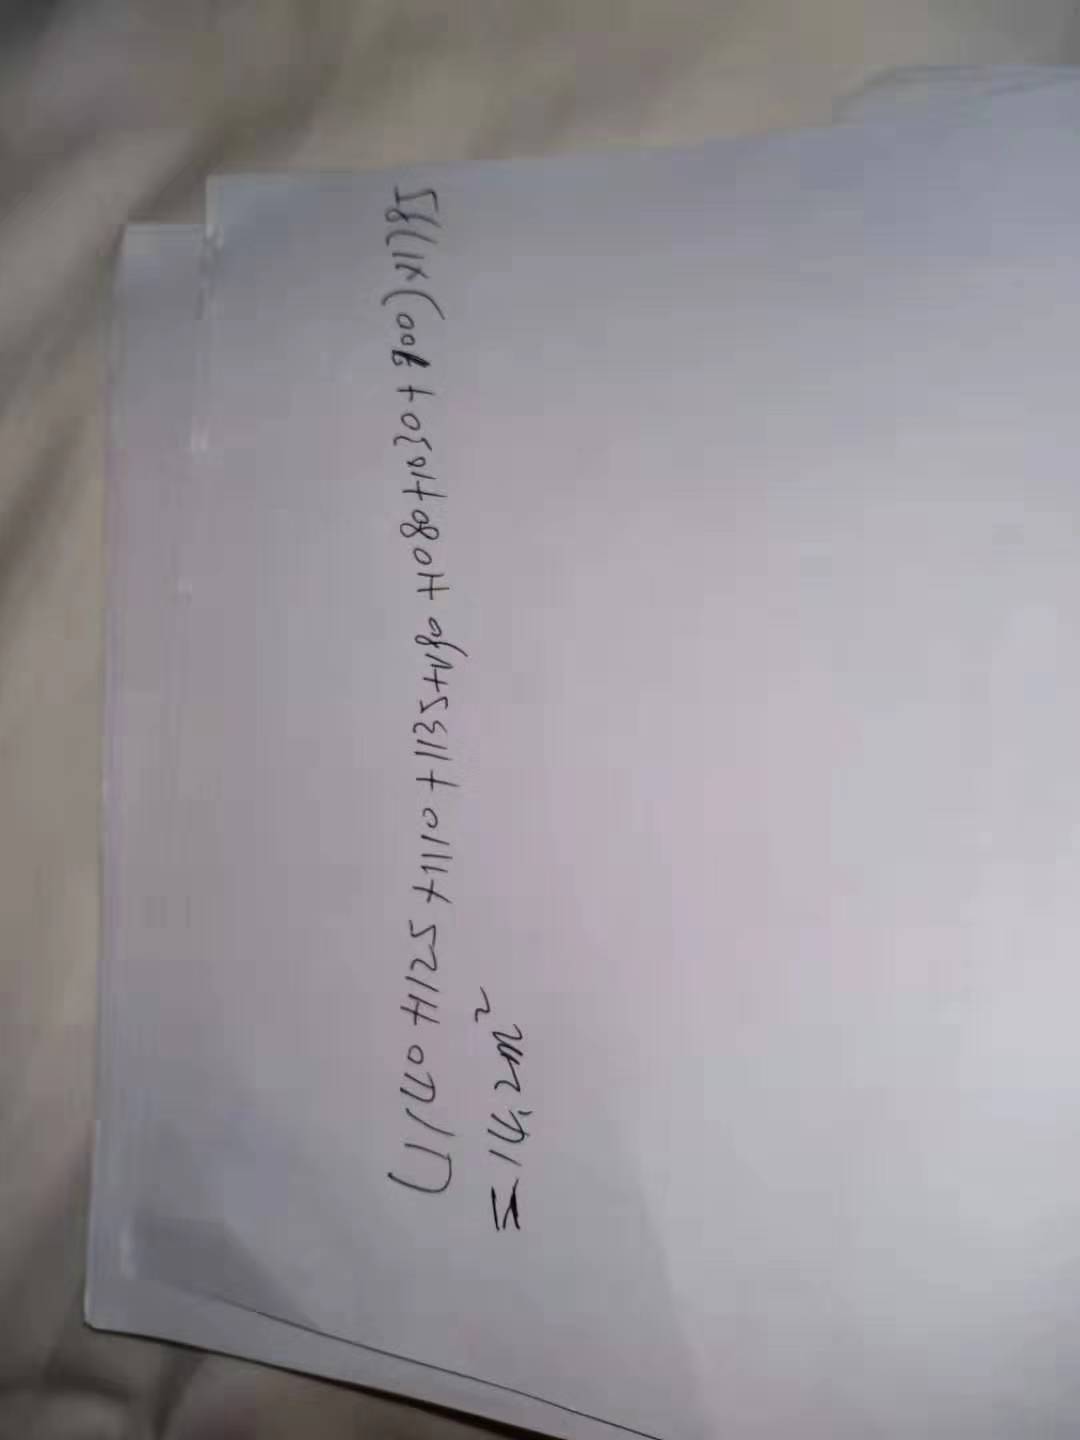 (1140+1125+1110+1135+490+1080+1030+800)×1795
=14.2m²